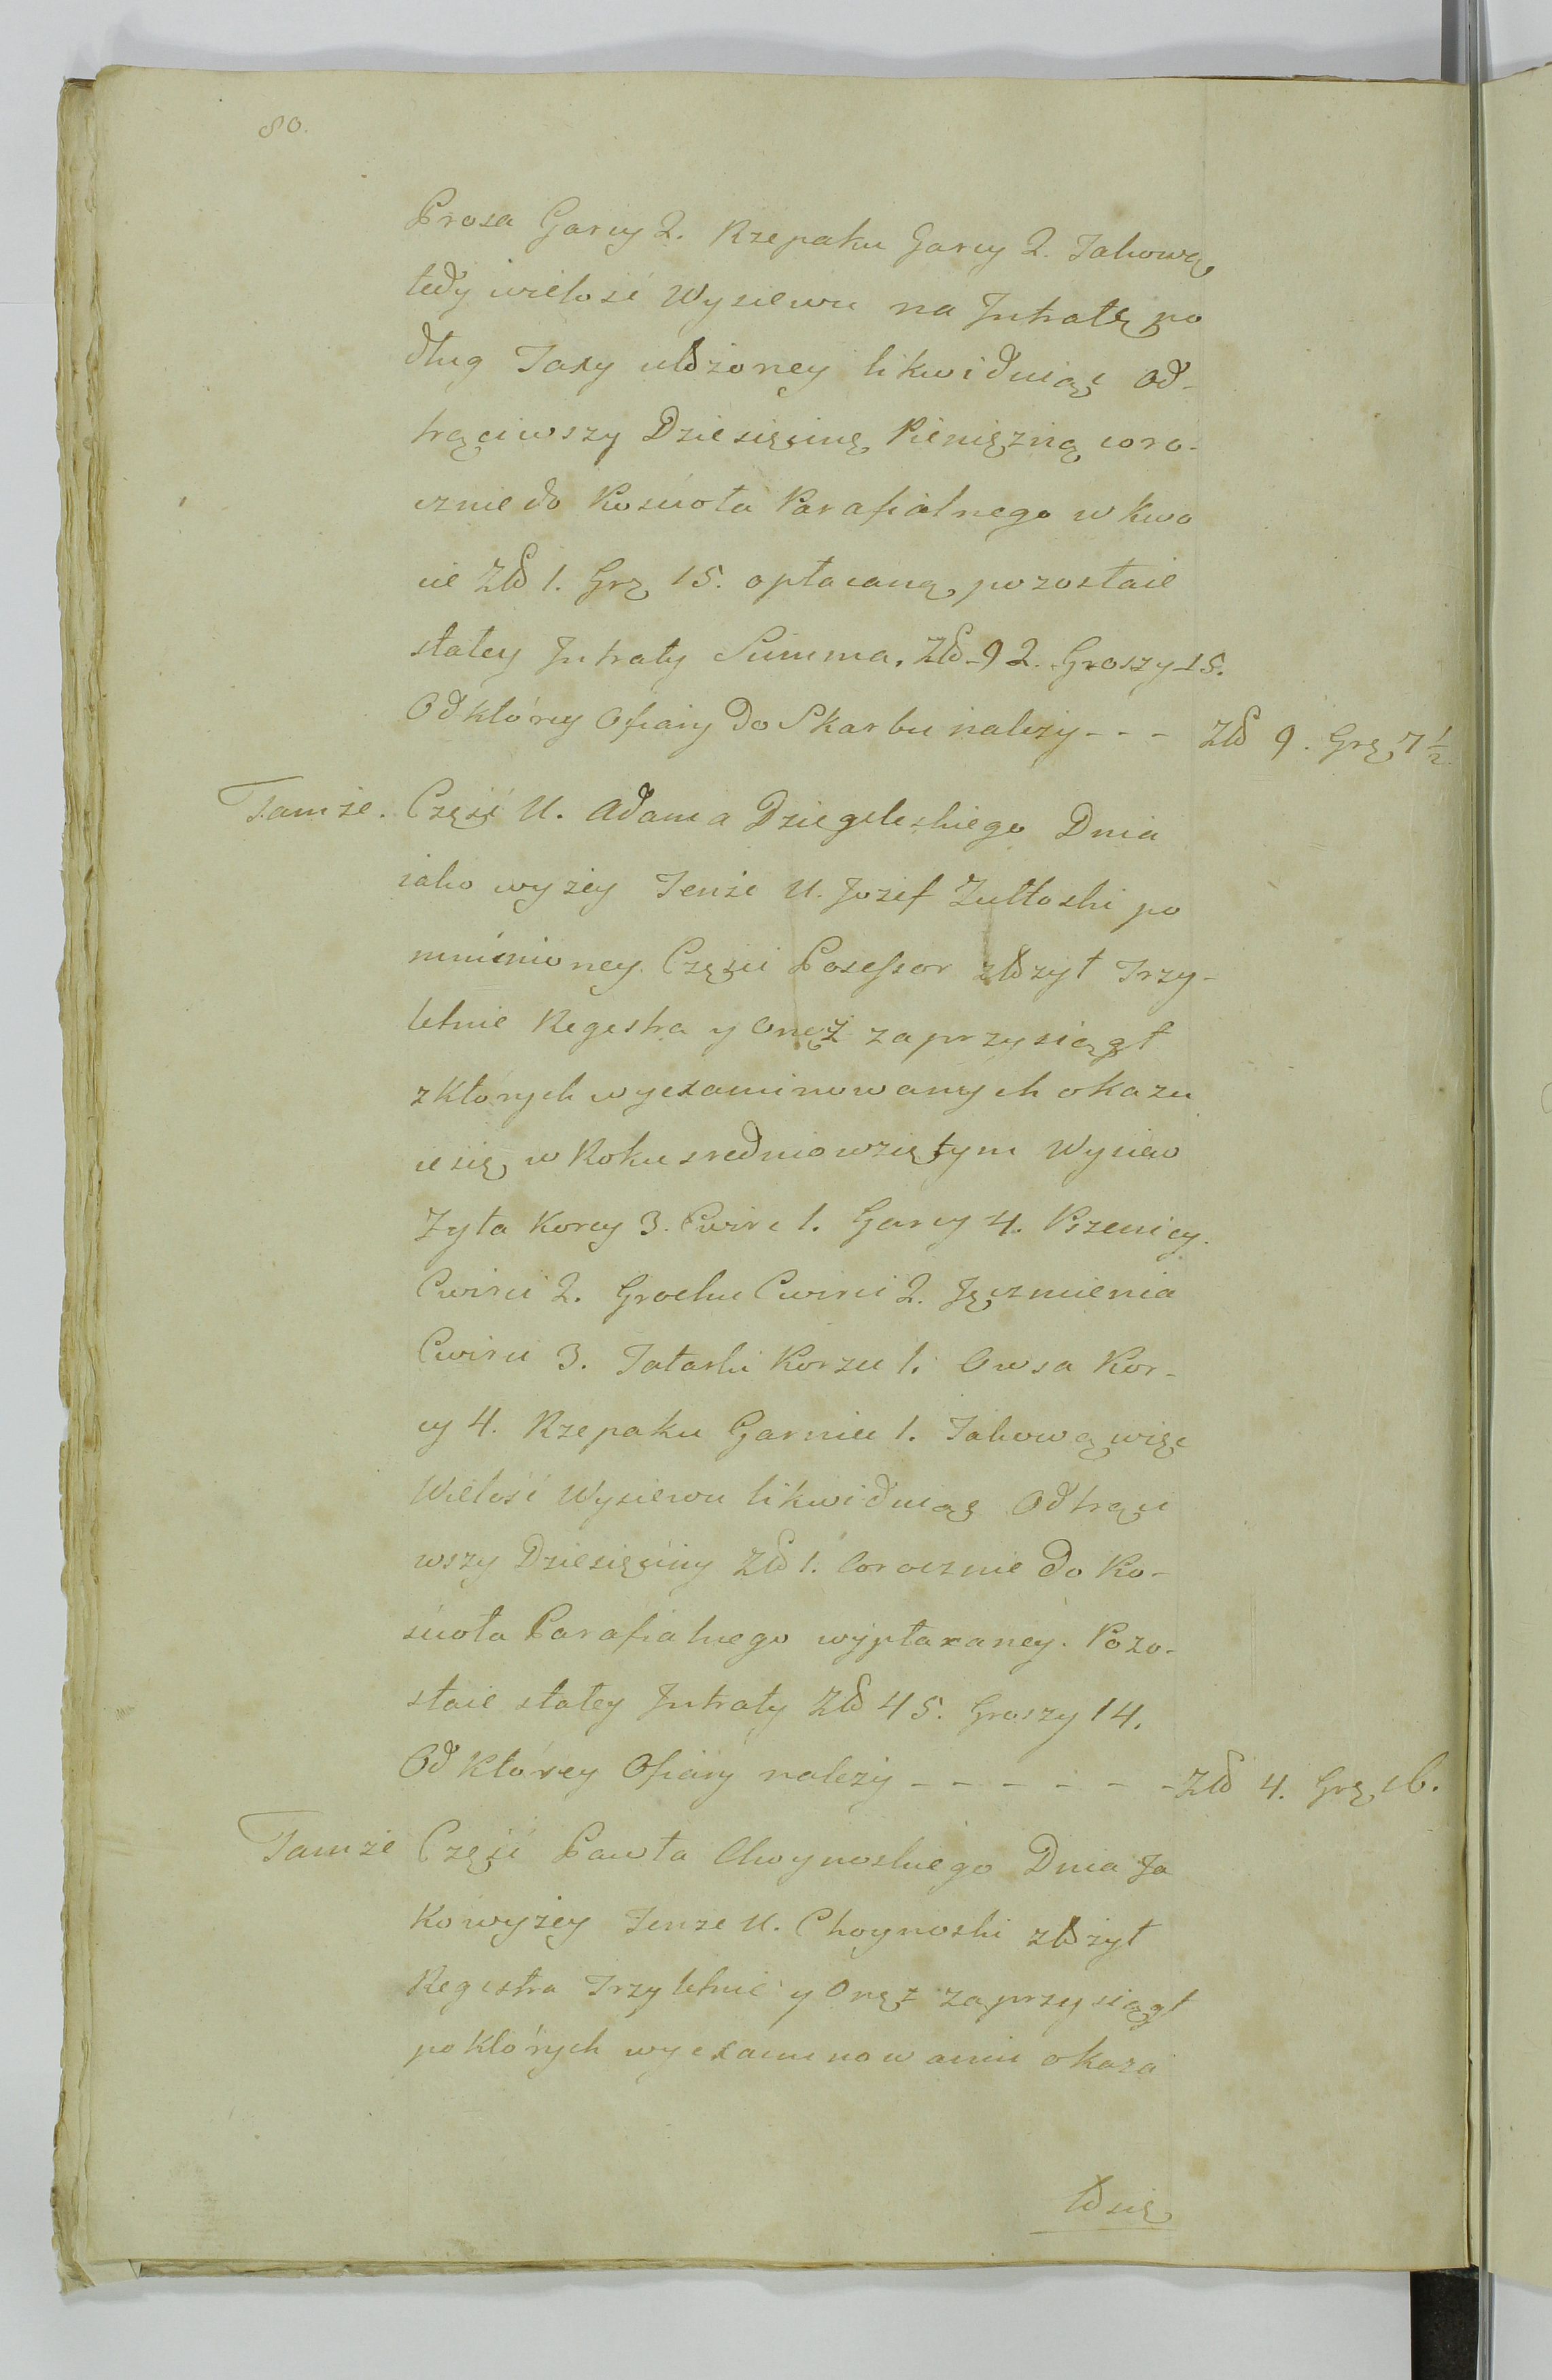 80.
Prosa Garcy 2. Rzepaku Garcy 2. Takową
tedy wielość Wysiewu na Jntratę po
dług Taxy ułożoney likwiduiąc od-
trąciwszy Dziesięcinę Pieniężną coro-
cznie do Kościoła Parafialnego w kwo
cie Zło 1. Grz 15. opłacaną, pozostaie
stałey Jntraty Summa. Zło 92. Groszy 15.
Od którey Ofiary do Skarbu należy - - - Zło 9. Grz 7 1/2
Tamże. Część U. Adama Dziegeleskiego Dnia
iako wyżey Tenże U. Jozef Zułtoski po
mnienioney Części Posessor złożył Trzy-
letnie Regestra y Oneż zaprzysiągł
z których wyexaminowanych okazu
ie się, w Roku srednio wziętym Wysiew
Zyta Korcy 3. Cwirć 1. Garcy 4. Pszenicy.
Cwirci 2. Grochu Cwirci 2. Jęczmienia
Cwirci 3. Tatarki Korzec 1. Owsa Kor-
cy 4. Rzepaku Garniec 1. Takową więc
Wielość Wysiewu likwiduiąc Odtrąci
wszy Dziesięciny Zło 1. Corocznie do Ko-
ścioła Parafialnego wypłacaney. Pozo-
staie stałey Jntraty Zło 45. Groszy 14.
Od Którey Ofiary należy - - - - - - Zło 4. Grz 16.
Tamże Część Pawła Choynoskiego Dnia Ja
ko wyżey Tenże U. Choynoski złożył
Regestra Trzyletnie y Oneż zaprzysiągł
po których wyexaminowaniu okaza
ło się